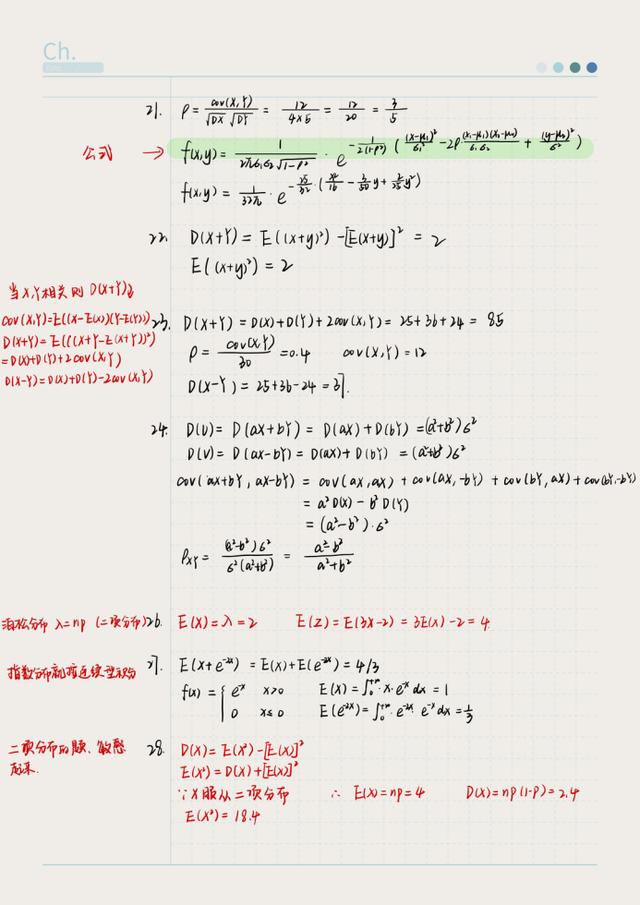 Ch.
21. ρ = cov(X,Y)/(√DX √DY) = 12/(4×5) = 12/20 = 3/5
公式 → f(x,y) = 1/(2πσ₁σ₂√(1-ρ²)) · e^(-1/(2(1-ρ²)) ((x-μ₁)²/σ₁² - 2ρ (x₁-μ₁)(x₂-μ₂)/σ₁σ₂ + (y-μ₂)²/σ²))
f(x,y) = 1/(32π) · e^(-25/32 · (x²/16 - 3/50 y + y²))
22. D(X+Y) = E((x+y)²) - [E(x+y)]² = 2
E((x+y)²) = 2
当X,Y相关则 D(X+Y)
cov(X,Y)=E((X-E(X))(Y-E(Y)))
D(X+Y)=E(((X+Y-E(X+Y))²)
=D(X)+D(Y)+2cov(X,Y)
D(X-Y)=D(X)+D(Y)-2cov(X,Y)
23. D(X+Y) = D(X)+D(Y)+2cov(X,Y) = 25+36+24 = 85
ρ = cov(X,Y)/30 = 0.4 cov(X,Y) = 12
D(X-Y) = 25+36-24 = 37.
24. D(U) = D(aX+bY) = D(aX)+D(bY) = (a²+b²)σ²
D(V) = D(aX-bY) = D(aX)+D(bY) = (a²+b²)σ²
cov(ax+bY, ax-bY) = cov(ax,ax) + cov(ax,-bY) + cov(bY,ax) + cov(bY,-bY)
= a²D(X) - b²D(Y)
= (a²-b²)·σ²
ρXY = (a²-b²)σ²/(σ²(a²+b²)) = (a²-b²)/(a²+b²)
泊松分布 λ=np (二项分布) 26. E(X)=λ=2 E(Z)=E(3X-2)=3E(X)-2=4
27. E(X+e^(-2X)) = E(X)+E(e^(-2X)) = 4/3
指数分布就按连续型积分
f(x) = { e^(-x) x>0 E(X)=∫₀^(+∞) x·e^(-x) dx = 1
0 x≤0 E(e^(-2X))=∫₀^(+∞) e^(-2x)·e^(-x) dx = 1/3
二项分布的题、敏感
起来.
28. D(X)=E(X²)-[E(X)]²
E(X²)=D(X)+[E(X)]²
∵X服从二项分布 ∴ E(X)=np=4 D(X)=np(1-p)=2.4
E(X²)=18.4